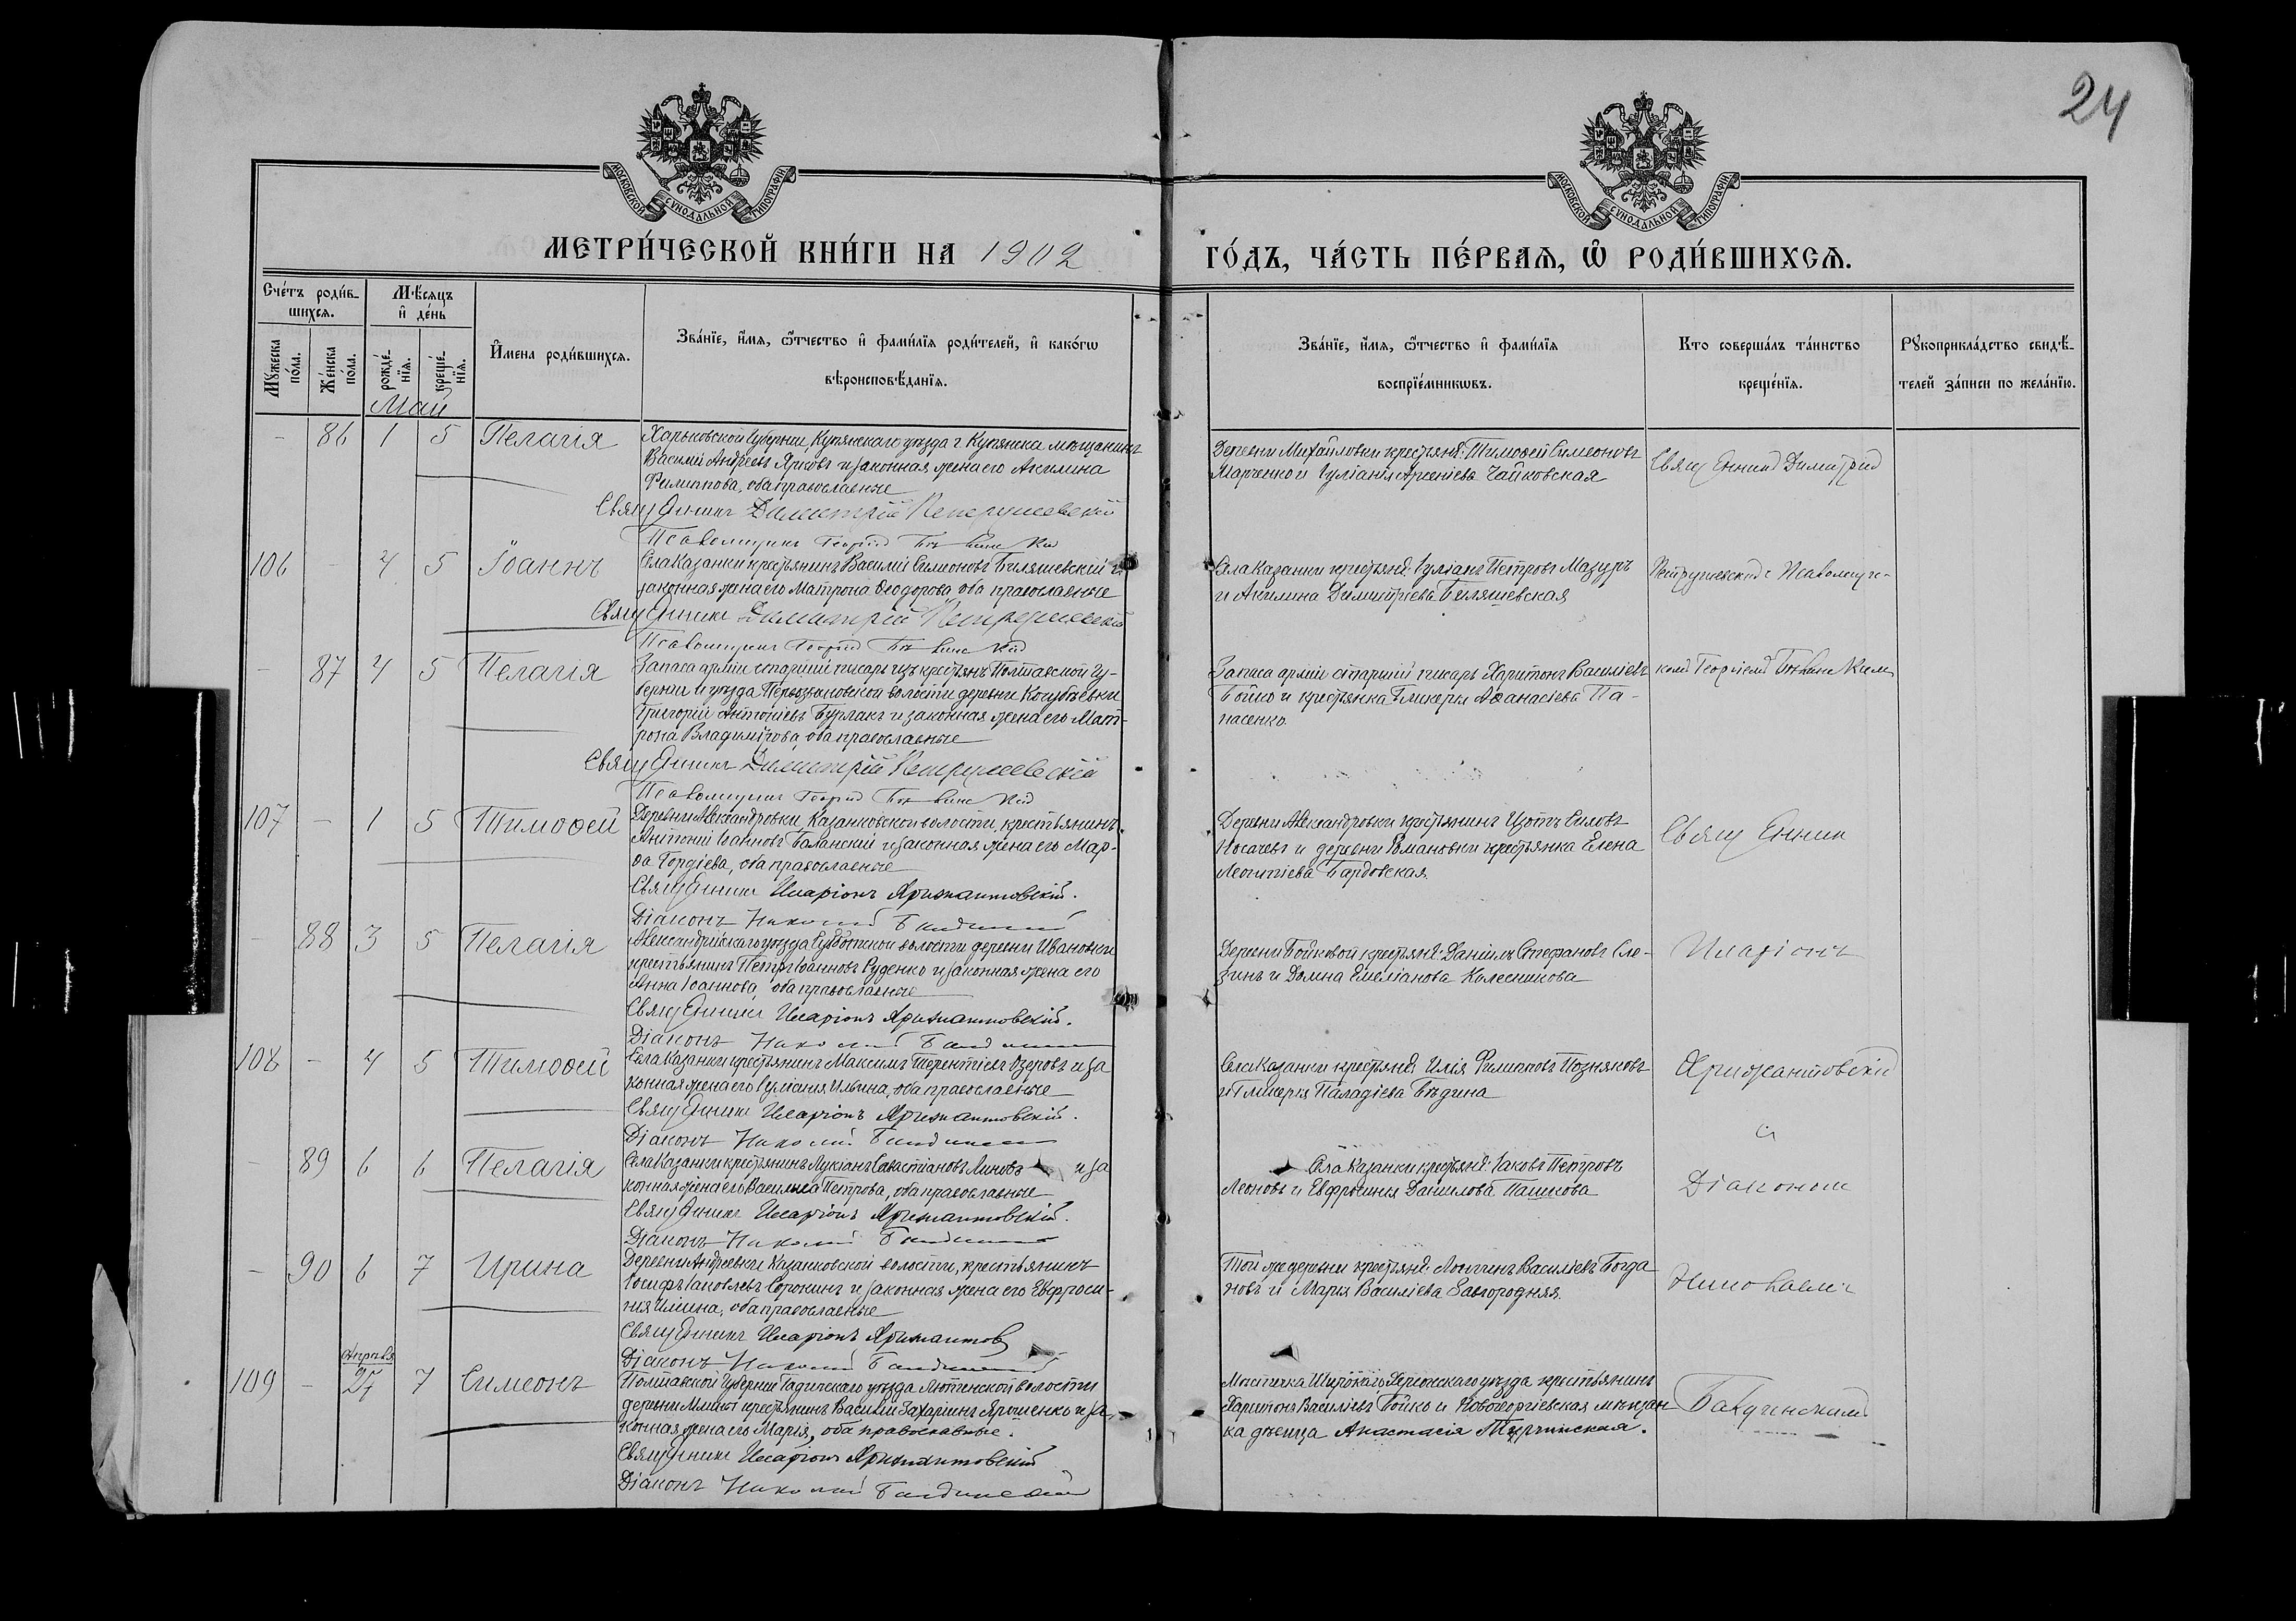 24
МОСКОВСКОЙ СѴНОДАЛЬНОЙ ТИПОГРАФІИ
МОСКОВСКОЙ СѴНОДАЛЬНОЙ ТИПОГРАФІИ
МЕТРИ́ЧЕСКОЙ КНИ́ГИ НА 1902 ГО́ДЪ, ЧА́СТЬ ПЕ́РВАЯ, Ѽ РОДИ́ВШИХСЯ.
Счéтъ роди́в-
шихся.
Мꙋ́жеска
по́ла.
Же́нска
по́ла.
Мѣ́сяцъ
и҆ де́нь
рожде́-
нїя.
креще́-
нїя.
И҆мена роди́вшихся.
Зва́нїе, и҆́мя, ѻ҆́тчество и҆ фами́лїя роди́телей, и҆ како́гѡ
вѣроисповѣ́данїя.
Зва́нїе, и҆́мя, ѻ҆́тчество и҆ фами́лїя
воспрїе́мникѡвъ.
Кто соверша́лъ та́инство
креще́нїя.
Рꙋкоприкла́дство свидѣ́-
телей за́писи по жела́нїю.
Май
- 86 1 5 Пелагія
Харьковской Губерніи, Купянскаго уѣзда г. Купянска мѣщанинъ
Василій Андреевъ и законная жена его Акилина
Филиппова, оба православные
Священникъ Димитрій Петрушевскій
Псаломщикъ Георгій
Деревни Михайловки крестьяне: Тимоѳей Симеоновъ
Марченко и Іуліанія Арсеніева Чайковская
Священникъ Димитрій
106 - 4 5 Іоаннъ
Села Казанки крестьянинъ Василій Симеоновъ Биляшевскій и
законная жена его Матрона Ѳеодорова, оба православные
Священникъ Димитрій Петрушевскій
Псаломщикъ Георгій
Села Казанки крестьяне: Іуліанъ Петровъ Мазуръ
и Акилина Димитріева Биляшевская
Петрушевскій с Псаломщи-
- 87 4 5 Пелагія
Запаса арміи старшій писарь изъ крестьянъ Полтавской Гу-
берніи и уѣзда Первозвановской волости деревни Коцубѣевки
Григорій Антоніевъ Бурлакъ и законная жена его Мат-
рона Владимірова, оба православные
Священникъ Димитрій Петрушевскій
Псаломщикъ Георгій
Запаса арміи старшій писарь Харитонъ Василіевъ
Бойко и крестьянка Гликерія Аѳанасіева Па-
пасенко.
комъ Георгіемъ
107 - 1 5 Тимоѳей
Деревни Александровки, Казанковской волости, крестьянинъ
Антоній Іоанновъ Баланскій и законная жена его Мар-
ѳа Гордіева, оба православные
Священникъ Иларіонъ Аржантовскій.
Діаконъ Николай
Деревни Александровки крестьянинъ Изотъ Силовъ
Носачевъ и деревни Романовки крестьянка Елена
Леонтіева Бардовская.
Священник
- 88 3 5 Пелагія
Александрійскаго уѣзда Субботской волости деревни Ивановки
крестьянинъ Петръ Іоанновъ Руденко и законная жена его
Анна Іоаннова, оба православные
Священникъ Иларіонъ Аржантовскій.
Діаконъ Николай
Деревни Бойковой крестьяне: Даніилъ Стефановъ Сле-
зинъ и Домна Емеліанова Колесникова
Иларіонъ
108 - 4 5 Тимоѳей
Села Казанки крестьянинъ Максимъ Терентіевъ Озеровъ и за
конная жена его Іуліанія Ильина, оба православные
Священникъ Иларіонъ Аржантовскій.
Діаконъ Николай
Села Казанки крестьяне: Илія Филипповъ Позняковъ
и Гликерія Паладіева Бѣдина
Аржантовскій
с
- 89 6 6 Пелагія
Села Казанки крестьянинъ Лукіанъ Савастіановъ и за
конная жена его Василиса Петрова, оба православные
Священникъ Иларіонъ Аржантовскій.
Діаконъ Николай
Села Казанки крестьяне: Іаковъ Петровъ
Леоновъ и Евфросинія Даніилова Пашкова
Діакономъ
- 90 6 7 Ирина
Деревни Андреевки Казанковской волости, крестьянинъ
Іосифъ Іаковлевъ Сорокинъ и законная жена его Евфроси-
нія, оба православные
Священникъ Иларіонъ Аржантов
Діаконъ Николай
Той же деревни крестьяне: Логгинъ Василіевъ Богда
новъ и Марія Василіева Завгородняя.
Николаемъ
Апрѣля
109 - 27 7 Симеонъ
Полтавской Губерніи Гадячскаго уѣзда Лютенской волости
деревни крестьянинъ Василій Захаріинъ Ярошенко и за
конная жена его Марія, оба православные.
Священникъ Иларіонъ Аржантовскій
Діаконъ Николай
Мѣстечка Широкаго Херсонскаго уѣзда крестьянинъ
Харитонъ Василіевъ Бойко и Новогеоргіевская мѣщан
ка дѣвица Анастасія